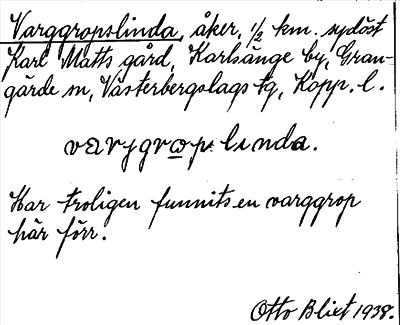 Varggropslinda, åker, 1/2 km. sydöst
Karl Matts gård, Karlsänge by, Gran-
gärde sn, Västerbergslags tg, Kopp. l.
varjgrop linda.
Har troligen funnits en varggrop
här förr.
Otto Blixt 1938.